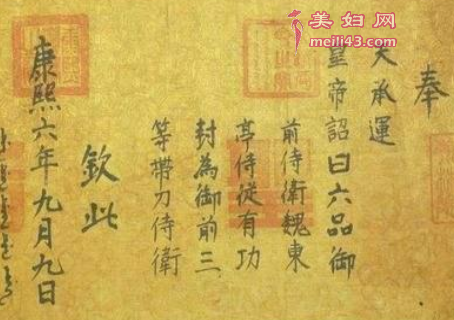 奉
天承運
皇帝詔曰六品御
前侍衛魏東
亭侍從有功
封為御前三
等帶刀侍衛
欽此
康熙六年九月九日
美妇网
meili43.com